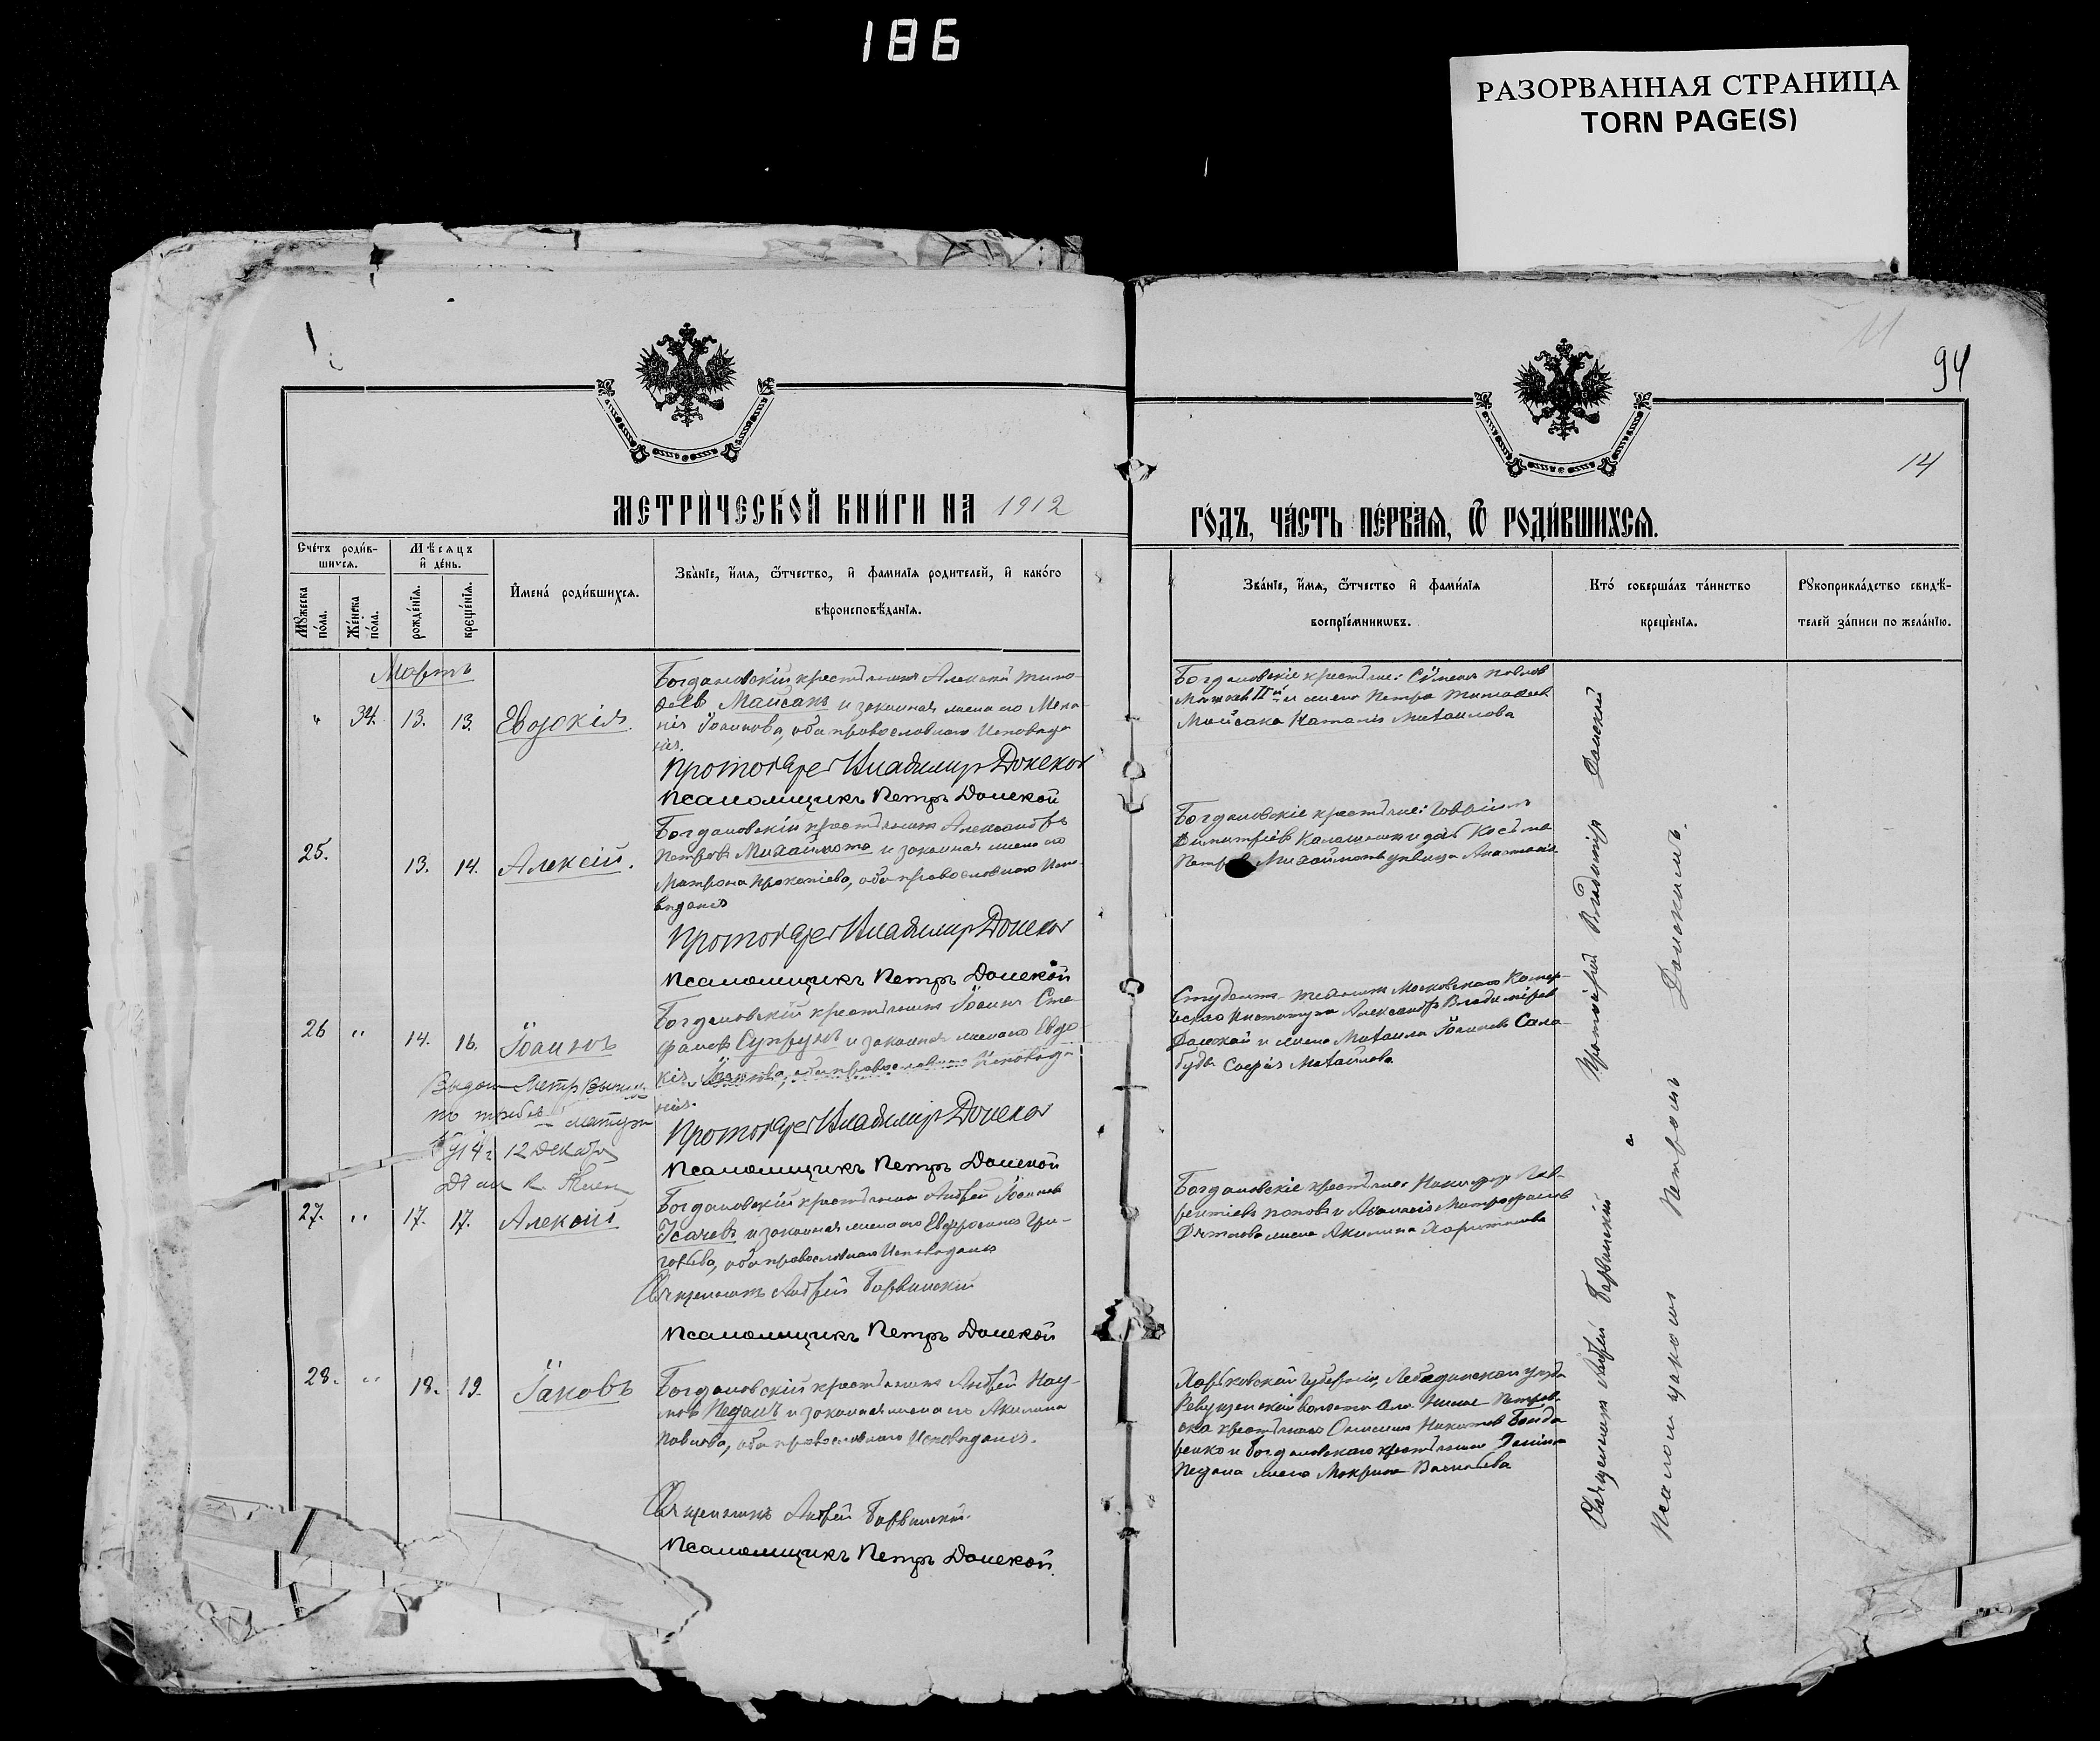 186
РАЗОРВАННАЯ СТРАНИЦА
TORN PAGE(S)
94
14
МЕТРИ́ЧЕСКОЙ КНИ́ГИ НА 1912
ГО́ДЪ, ЧА́СТЬ ПЕ́РВАѦ, Ѿ РОДИ́ВШИХСѦ.
Сче́тъ роди́в-
шихсѧ.
Мѣсѧцъ
и де́нь.
Мꙋжеска
по́ла.
Же́нска
по́ла.
рожде́нїѧ.
креще́нїѧ.
Имена́ роди́вшихсѧ.
Зва́нїе, и́мѧ, ѻ́тчество, и фамилїѧ родителей, и како́гѡ
вѣроисповѣданїѧ.
Зва́нїе, и́мѧ, ѻ́тчество и фами́лїѧ
воспрїе́мникѡвъ.
Кто̀ соверша́лъ та́инство
креще́нїѧ.
Рꙋкоприкла́дство свидѣ-
телей за́писи по жела́нїю.
Мартъ
" 34. 13. 13. Евдокія.
Богдановскій крестьянинъ Алексій Тимо-
феевъ Майсакъ и законная жена его Мела-
нія Іоаннова, оба православнаго исповѣда-
нія.
Протоіерей Владимиръ Донской
Псаломщикъ Петръ Донской
Богдановскіе крестьяне: Сѵмеонъ Павловъ
и жена Петра Тимофеева
Майсака Наталія Михаилова
25. 13. 14. Алексій.
Богдановскій крестьянинъ Александръ
Петровъ Михайлота и законная жена его
Матрона Прокопіева, оба православнаго испо-
вѣданія
Протоіерей Владимиръ Донской
Псаломщикъ Петръ Донской
Богдановскіе крестьяне: Гавріилъ
Димитріевъ Калашник и Косьмы
Петрова дѣвица Анастасія
26 " 14. 16. Іоаннъ
Богдановскій крестьянинъ Іоаннъ Сте-
фановъ Супрунъ и законная жена его Евдо-
кія, оба православнаго исповѣда-
нія.
Протоіерей Владимиръ Донской
Псаломщикъ Петръ Донской
Студентъ Московскаго Комер-
ческаго Института Александръ Владиміровъ
Донской и жена Михаила Іоаннова Сала-
буды Софія Михайлова
Выдана Метр.
12 Декабря
27. " 17. 17. Алексій
Богдановскій крестьянинъ Андрей Іоанновъ
Усачевъ и законная жена его Евфросинія Гри-
горьева, оба православнаго исповѣданія
Священникъ Андрей Барвинскій
Псаломщикъ Петръ Донской
Богдановскіе крестьяне: Никифоръ Лав-
рентіевъ Поповъ и Афанасія Митрофанова
жена Акилина Харитонова
28. " 18. 19. Іаковъ
Богдановскій крестьянинъ Андрей Нау-
мовъ Педанъ и законная жена его Акилина
Павлова, оба православнаго исповѣданія.
Священникъ Андрей Барвинскій.
Псаломщикъ Петръ Донской.
Харьковской губерніи, Лебединскаго уѣзда
волости
крестьянинъ Никитовъ Бонда-
ренко и Богдановскаго крестьянина
Педана жена Макрина
Протоіерей Владиміръ Донской
Священникъ Андрей Барвинскій
Псаломщикомъ Петромъ Донскимъ.